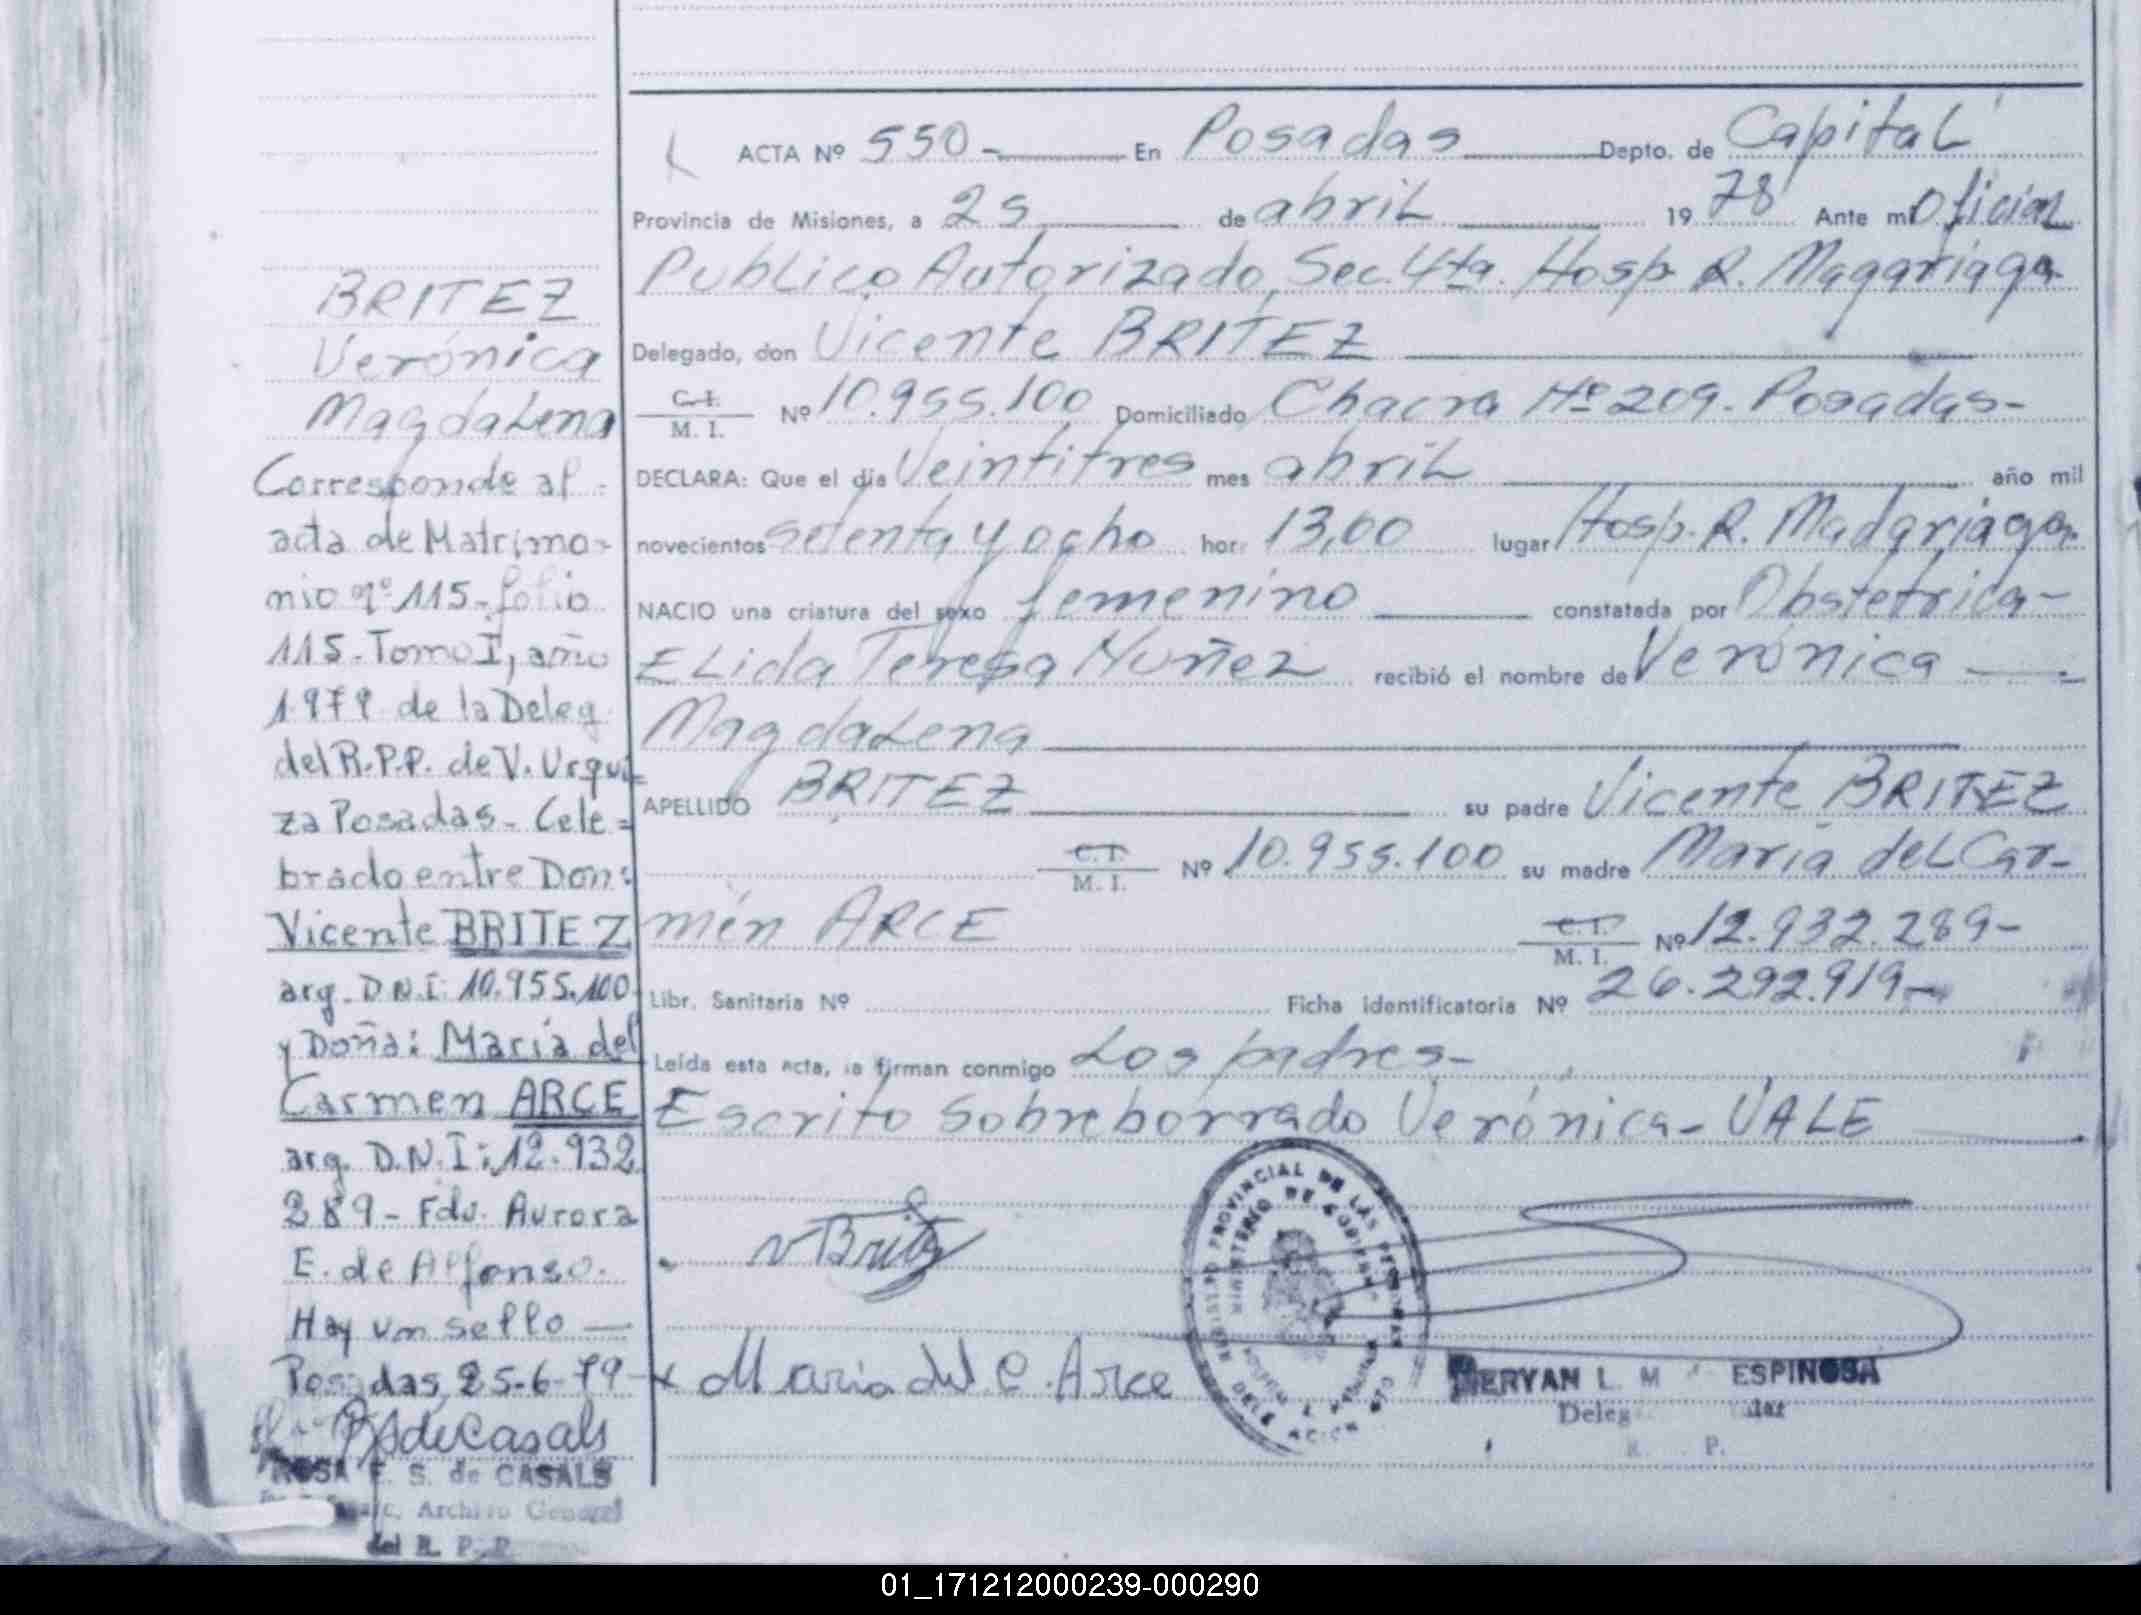 BRITEZ
Verónica
Magdalena
Corresponde al
acta de Matrimo-
nio nº 115-folio
115-Tomo I, año
1979 de la Deleg
del R.P.P. de V. Urqui-
za Posadas- Cele-
brado entre Don:
Vicente BRITEZ
arg. D.N.I: 10.955.100
y Doña: María del
Carmen ARCE
arg. D.N.I: 12.932
289- Fdo. Aurora
E. de Alfonso.
Hay un sello —
Posadas, 25-6-79
RSdeCasals
ROSA E. S. de CASALS
Archivo General
del R. P. P.
ACTA Nº 550- En Posadas Depto. de Capital
Provincia de Misiones, a 25 de abril 1978 Ante mí Oficial
Publico Autorizado, Sec. 4ta. Hosp. R. Magariaga
Delegado, don Vicente BRITEZ
C. I.
M. I. Nº 10.955.100 Domiciliado Chacra Nº 209- Posadas-
DECLARA: Que el día Veintitres mes abril año mil
novecientos setenta y ocho hor: 13,00 lugar Hosp. R. Madariaga
NACIO una criatura del sexo femenino constatada por Obstetrica-
Elida Teresa Nuñez recibió el nombre de Verónica
Magdalena
APELLIDO BRITEZ su padre Vicente BRITEZ
C. I.
M. I. Nº 10.955.100 su madre María del Car-
mén ARCE C. I.
M. I. Nº 12.932.289-
Libr. Sanitaria Nº Ficha identificatoria Nº 26.292.919-
Leída esta acta, la firman conmigo Los padres-
Escrito sobreborrado Verónica- VALE
VBritez
REGISTRO PROVINCIAL DE LAS PERSONAS
MINISTERIO DE GOBIERNO
x Maria del C. Arce
ESPINOSA
01_171212000239-000290